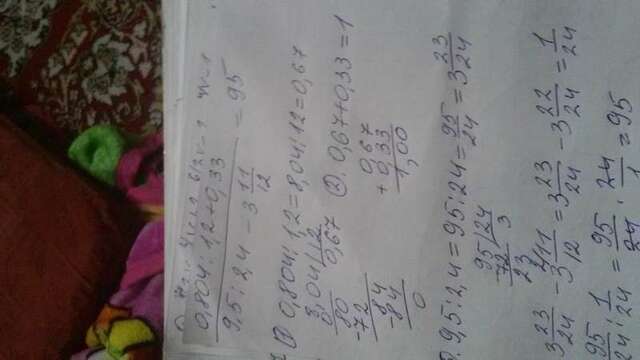 0,804:1,2+0,33
9,5:2,4 - 3 11/12 = 95
① 0,804:1,2=8,04:12=0,67
8,04 12
0 0,67
80
-72
84
-84
0
②. 0,67+0,33=1
0,67
+ 0,33
1,00
9,5:2,4=95:24=95/24=3 23/24
95 24
72 3
23
3 23/24 - 3 11/12 = 3 23/24 - 3 22/24 = 1/24
95/24 : 1/24 = 95/24 · 24/1 = 95